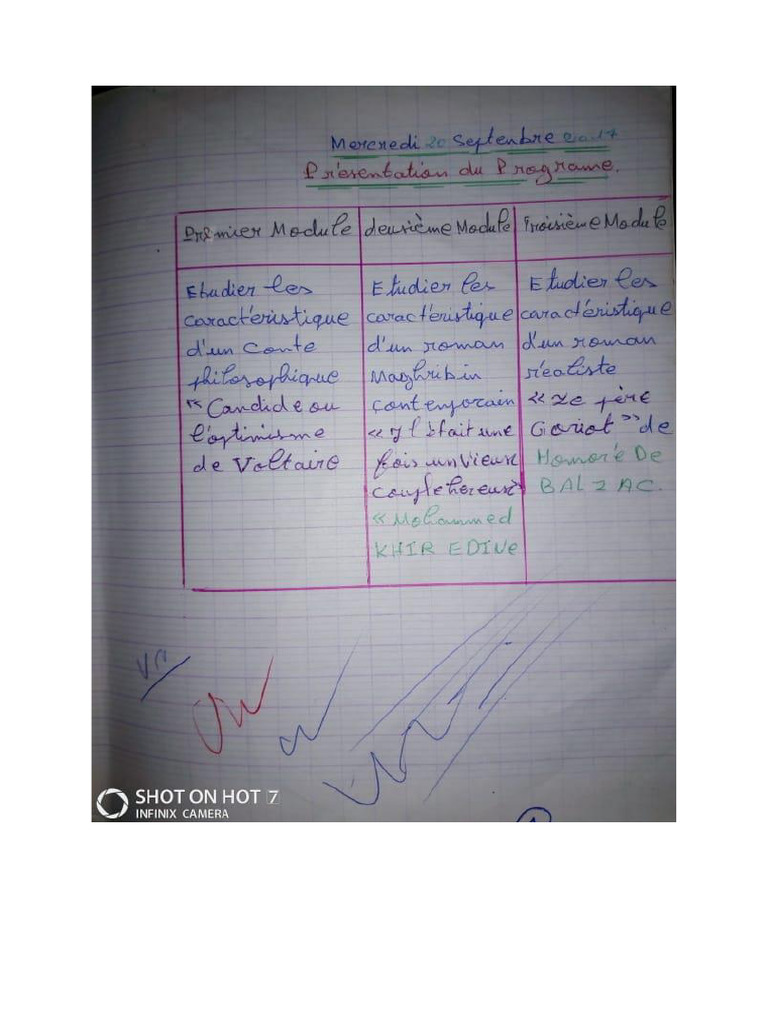 Mercredi 20 Septembre 2017
Présentation du Programe.
Premier Module
deuxième Module
Troisième Module
Etudier les
caractéristique
d'un conte
philosophique
"Candide ou
l'optimisme
de Voltaire
Etudier les
caractéristique
d'un roman
Maghribin
contemporain
« Il était une
fois un vieux
couple hereux»
« Mohammed
KHIR EDINe
Etudier les
caractéristique
d'un roman
réaliste
« Le père
Goriot » de
Honoré De
BALZAC.
Vu
SHOT ON HOT 7
INFINIX CAMERA